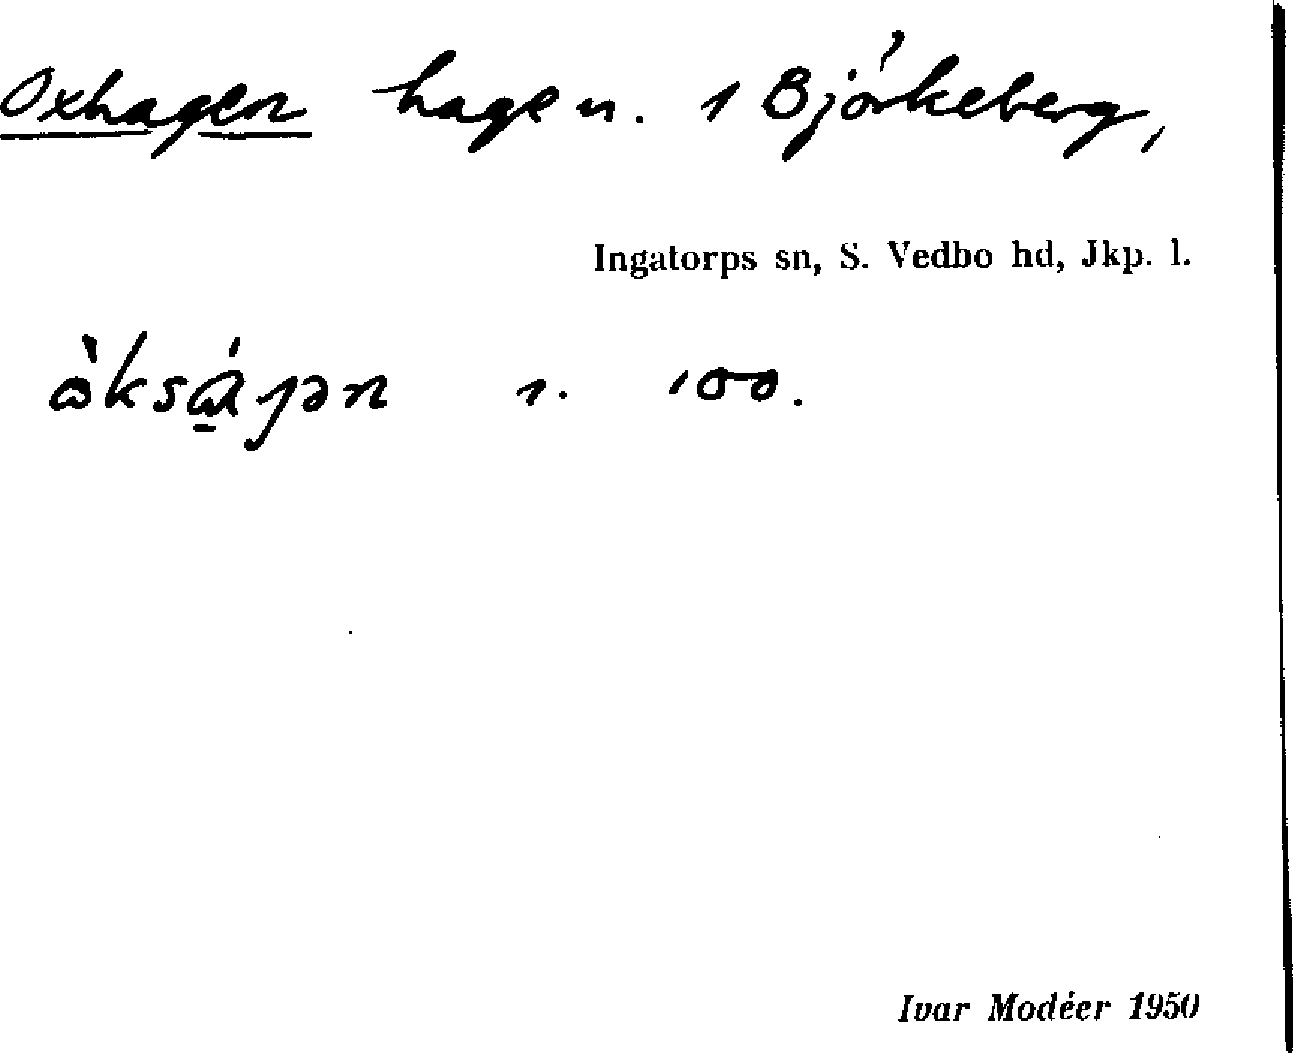 Oxhagen hage n. 1 Björkeberg,
Ingatorps sn, S. Vedbo hd, Jkp. l.
1. 100.
Ivar Modéer 1950